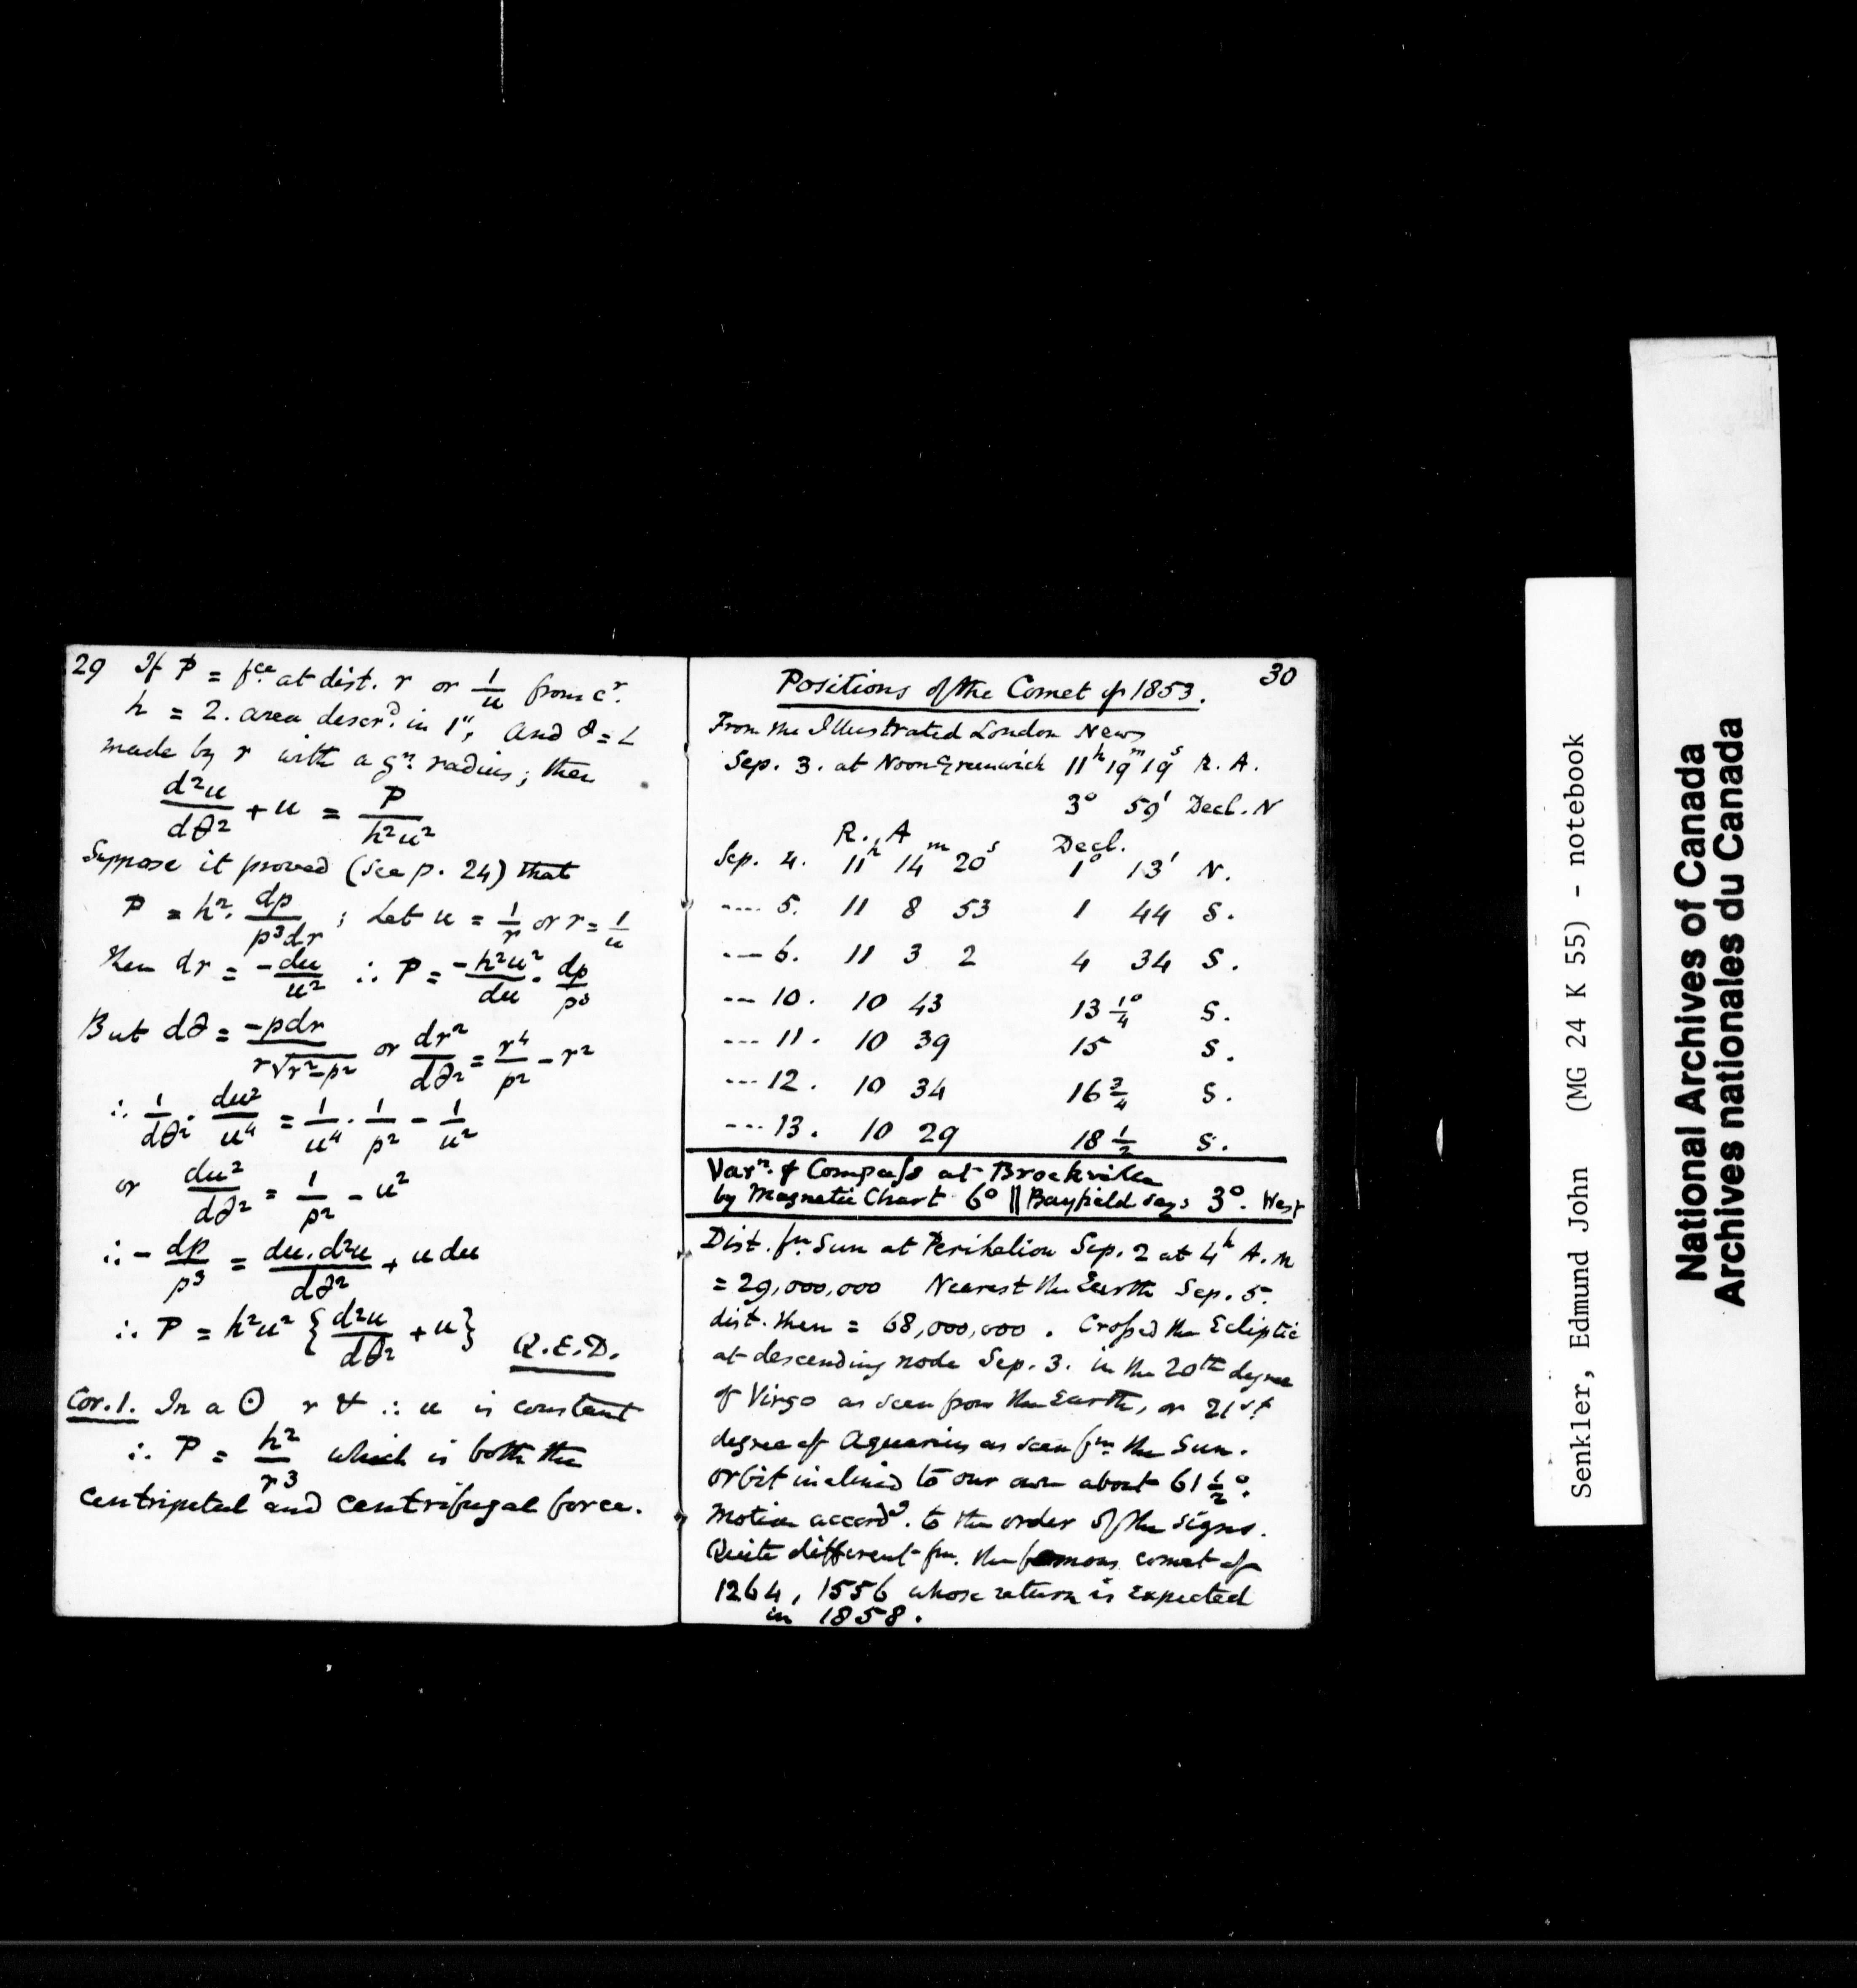 29 If P = fce. at dist. r or 1/u from cr.
h = 2. area descrd. in 1", and θ = ∠
made by r with a gn. radius; then
d²u/dθ² + u = P/h²u²
Suppose it proved (see p. 24) that
P = h². dp/p³dr ; Let u = 1/r or r = 1/u
then dr = -du/u² ∴ P = -h²u²/du . dp/p³
But dθ = -pdr/r√r²-p² or dr²/dθ² = r⁴/p² - r²
∴ 1/dθ² . du²/u⁴ = 1/u⁴ . 1/p² - 1/u²
or du²/dθ² = 1/p² - u²
∴ - dp/p³ = du.d²u/dθ² + u du
∴ P = h²u² {d²u/dθ² + u} Q.E.D.
Cor. 1. In a ⊙ r & ∴ u is constant
∴ P = h²/r³ which is both the
centripetal and centrifugal force.
30
Positions of the Comet of 1853.
From the Illustrated London News
Sep. 3. at Noon Greenwich 11h 19m 19s R. A.
3° 59' Decl. N
R. A Decl.
Sep. 4. 11h 14m 20s 1° 13' N.
---- 5. 11 8 53 1 44 S.
--- 6. 11 3 2 4 34 S.
--- 10. 10 43 13 1/4° S.
--- 11. 10 39 15 S.
--- 12. 10 34 16 3/4 S.
--- 13. 10 29 18 1/2 S.
Varn. of Compass at Brockville
by Magnetic Chart 6° || Bayfield says 3°. West
Dist. fm. Sun at Perihelion Sep. 2 at 4h A.M
= 29,000,000 Nearest the Earth Sep. 5.
dist. then = 68,000,000. Crossed the Ecliptic
at descending node Sep. 3. in the 20th degree
of Virgo as seen from the Earth, or 21st
degree of Aquarius as seen fm. the Sun.
Orbit inclined to our own about 61 1/2°.
Motion accordg. to the order of the signs.
Quite different fm. the famous comet of
1264, 1556 whose return is expected
in 1858.
Senkler, Edmund John (MG 24 K 55) - notebook
National Archives of Canada
Archives nationales du Canada